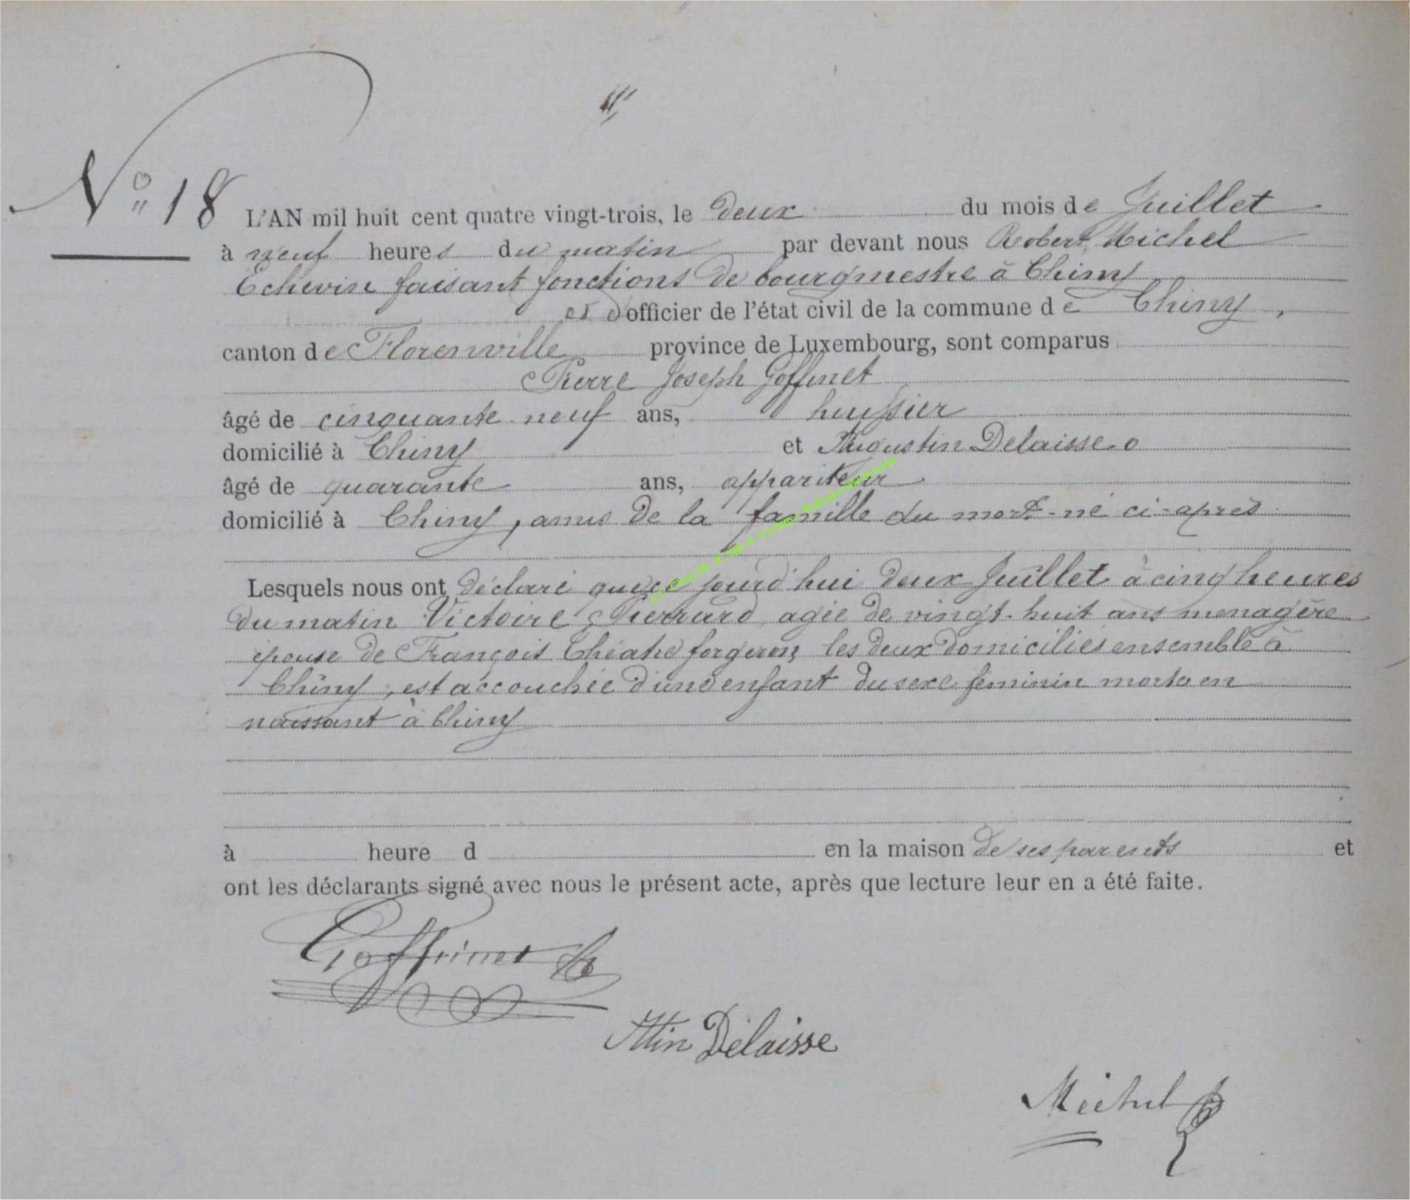 N° 18
L'AN mil huit cent quatre vingt-trois, le deux du mois de Juillet
à neuf heures du matin par devant nous Robert Michel
Echevin faisant fonctions de bourgmestre à Chiny
et d'officier de l'état civil de la commune de Chiny,
canton de Florenville province de Luxembourg, sont comparus
Pierre Joseph Goffinet
âgé de cinquante neuf ans, huissier
domicilié à Chiny et Augustin Delaisse
âgé de quarante ans, appariteur
domicilié à Chiny, amis de la famille du mort-né ci-après
Lesquels nous ont déclaré que ce jourd'hui deux Juillet à cinq heures
du matin Victoire Pierrard, agée de vingt-huit ans menagère
épouse de François forgeron, les deux domiciliés ensemble à
Chiny, est accouchée d'une enfant du sexe feminin morte en
naissant à Chiny
à heure d en la maison de ses parents et
ont les déclarants signé avec nous le présent acte, après que lecture leur en a été faite.
Goffinet
Atin Delaisse
Michel